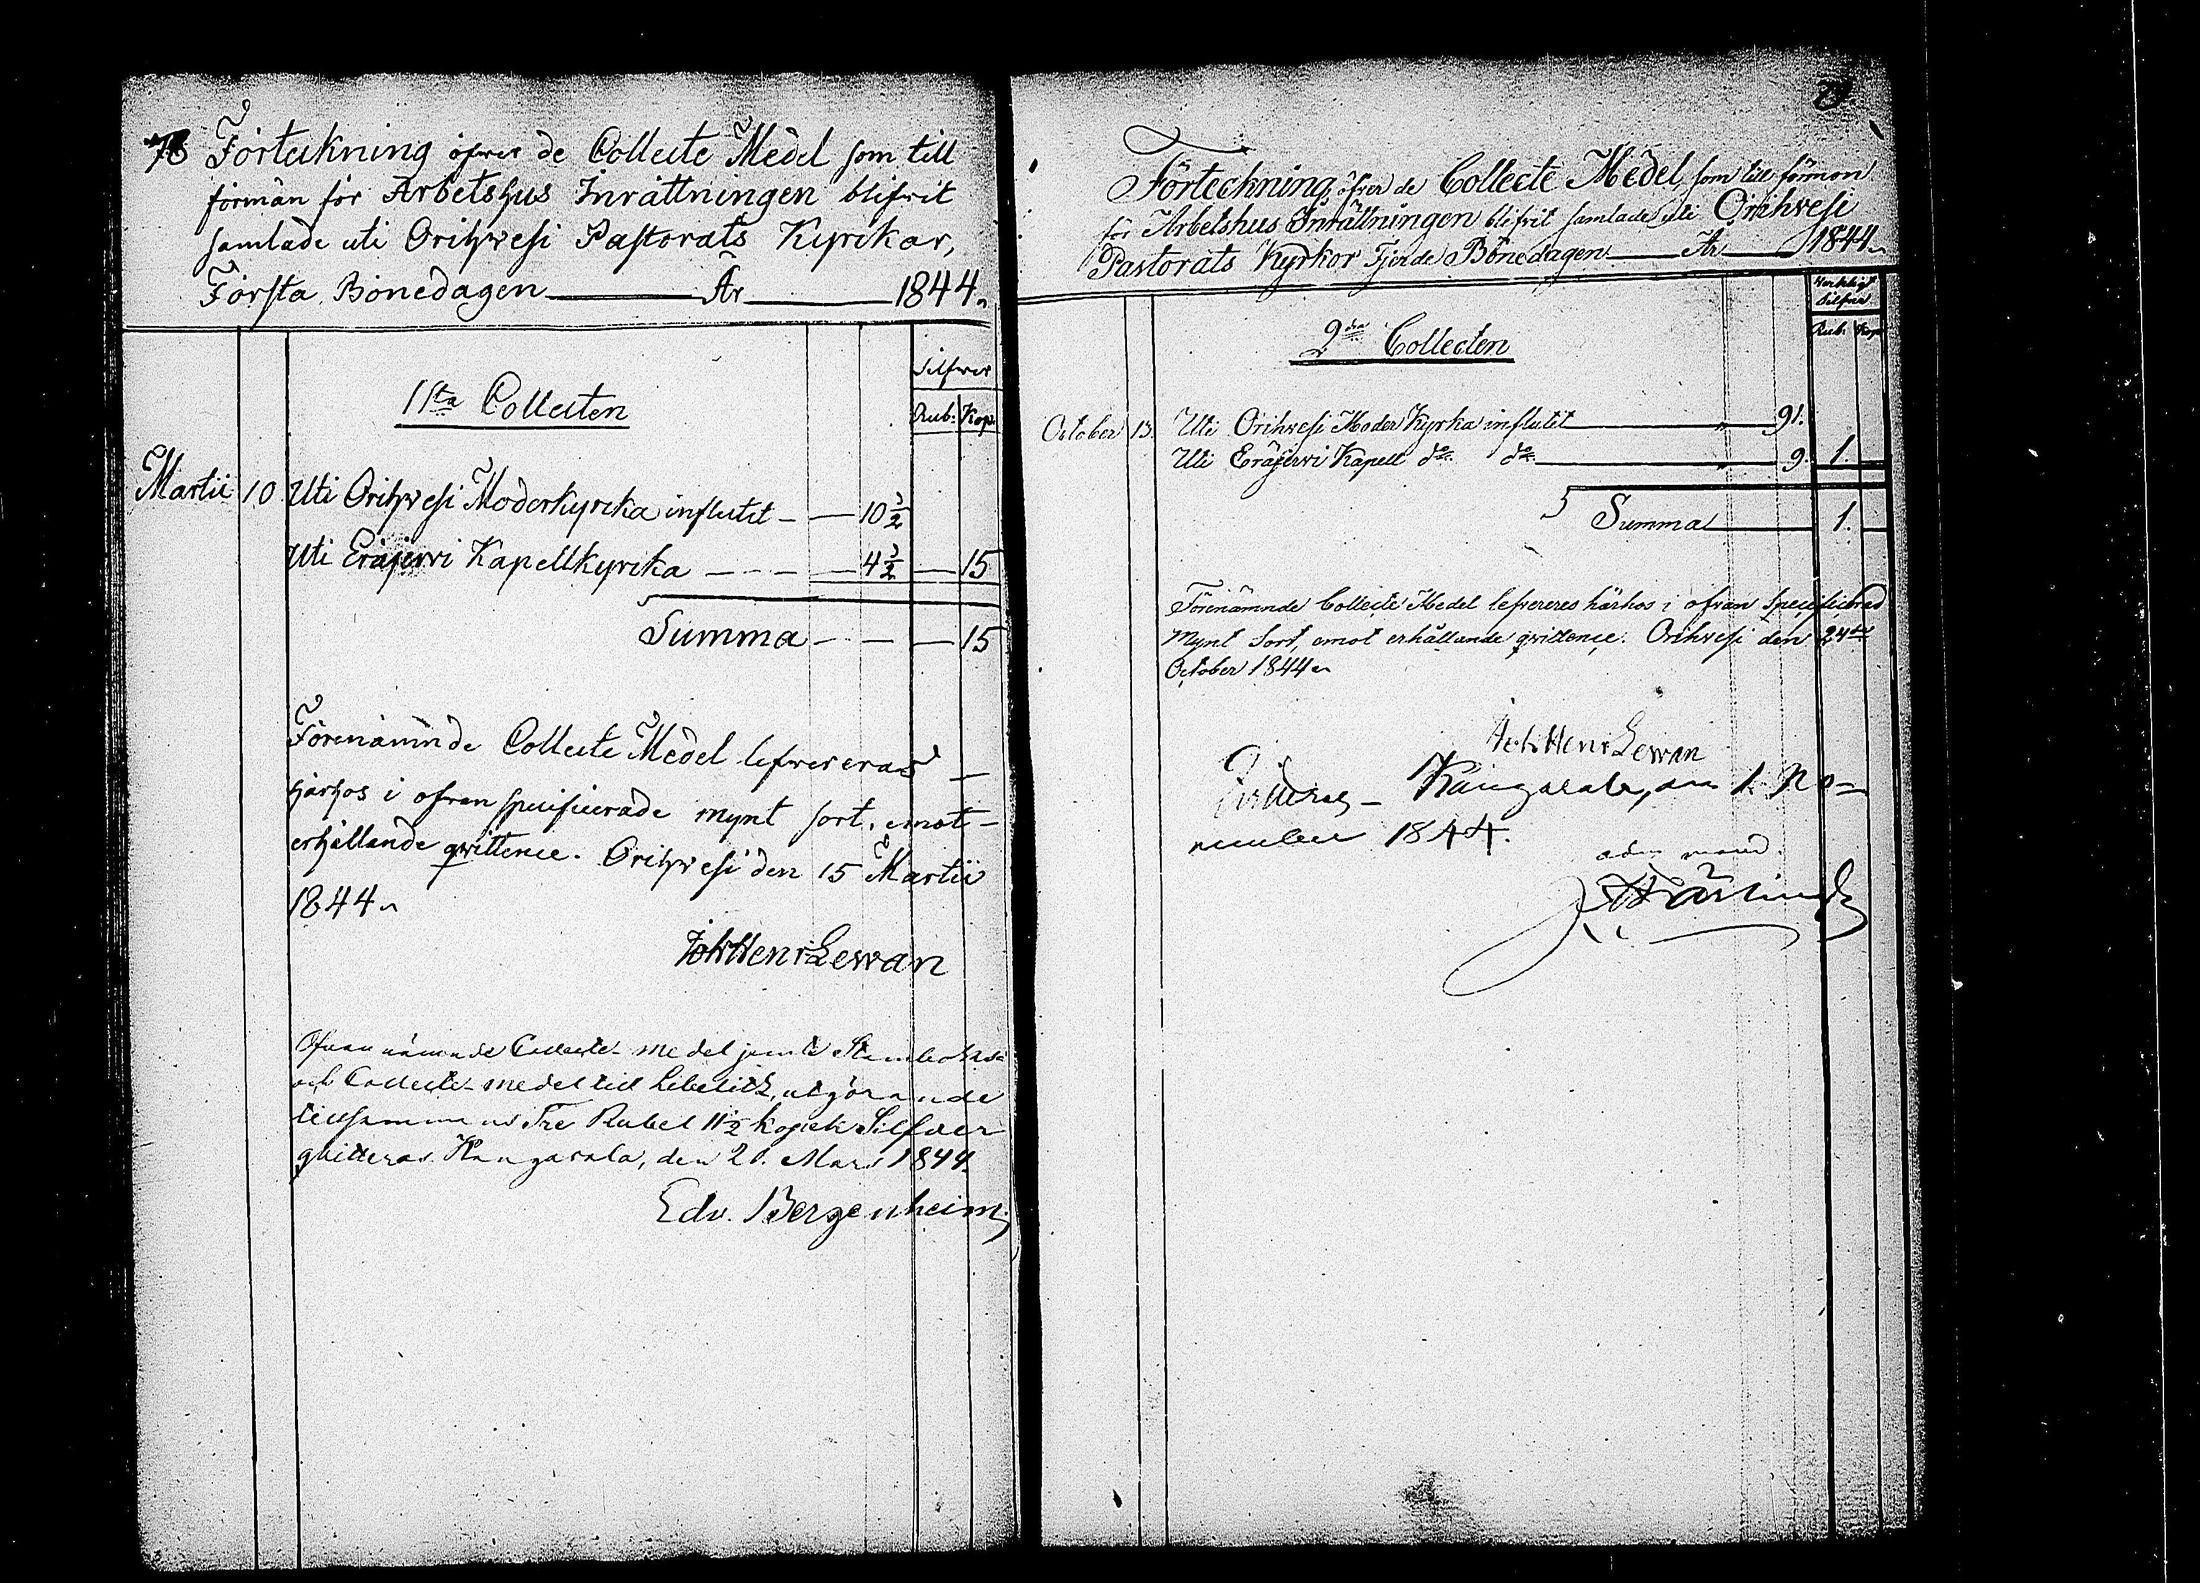 78 Förteckning öfver de Collecte Medel som till
förmån för Arbetshus Inrättningen blifvit
samlade uti Orihvesi Pastorats Kyrckor,
Första Bönedagen År 1844.
Silfver
1sta Collecten
Rub: Kop:
Martii 10 Uti Orihvesi Moderkyrcka influtit — — 10 1/2
Uti Eräjervi Kapellkyrcka — — — — 4 1/2 — 15
Summa — — — 15
Förenämnde Collecte Medel lefvereras
härhos i ofvan specificerade mynt sort, emot
erhållande qvittence. Orihvesi den 15 Martii
1844.
Joh Henr Lewan
Ofvannämnde Collecte-medel jemte
och Collecte-medel till Libelitz, utgörande
tillsammans Tre Rubel 11 1/2 kopek Silfver
quitteras. Kangasala, den 20. Mars 1844.
Edv. Bergenheim
Förteckning öfver de Collecte Medel, som till förmon
för Arbetshus Inrättningen blifvit samlade uti Orihvesi
Pastorats Kyrkor Fjerde Bönedagen År 1844.
Silfver
Rub: Kop:
2dra Collecten
October 13. Uti Orihvesi Moder Kyrka influtit 91.
Uti Eräjervi Kapell do do 9. 1.
Summa 1.
Förenämnde Collecte Medel lefvereres härhos i ofvan specificerad
Mynt Sort, emot erhållande qvittence. Orihvesi den 24de
October 1844.
Joh Henr Lewan
Qvitteras — Kangasala, den 1. No-
vember 1844.